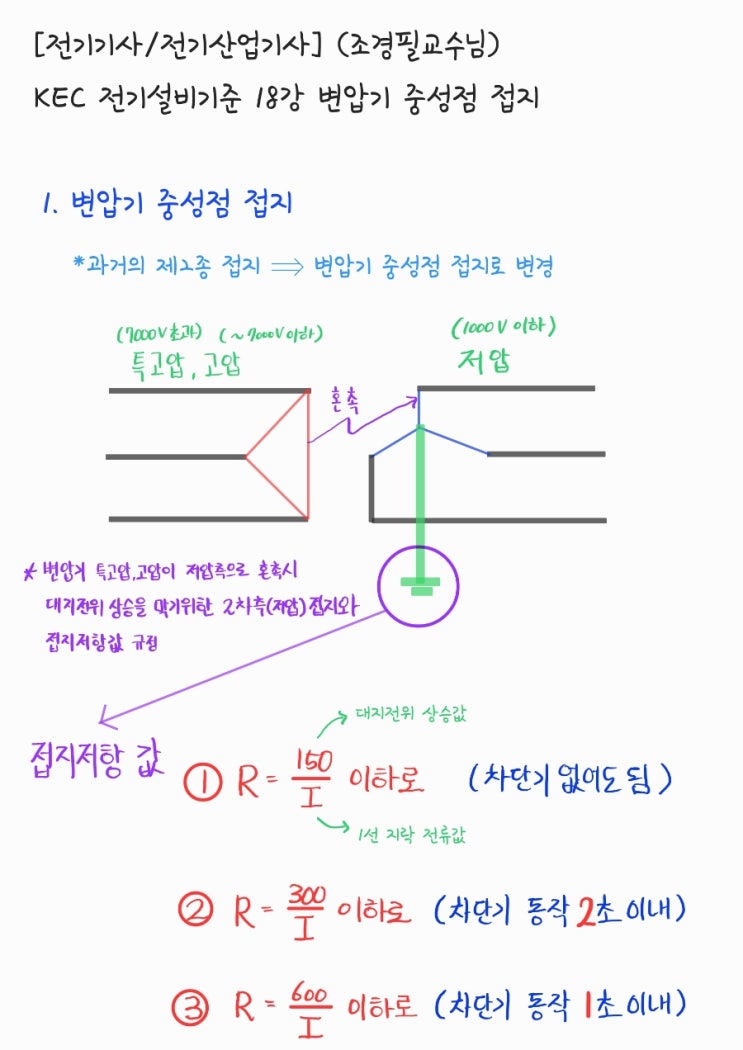 [전기기사/전기산업기사] (조경필교수님)
KEC 전기설비기준 18강 변압기 중성점 접지
1. 변압기 중성점 접지
*과거의 제2종 접지 ⟹ 변압기 중성점 접지로 변경
(7000V초과) (~7000V이하)
특고압, 고압
(1000V이하)
저압
혼촉
* 변압기 특고압,고압이 저압측으로 혼촉시
대지전위 상승을 막기위한 2차측(저압)접지와
접지저항값 규정
접지저항 값
대지전위 상승값
① R = 150/I 이하로 (차단기 없어도 됨)
1선 지락 전류값
② R = 300/I 이하로 (차단기 동작 2초이내)
③ R = 600/I 이하로 (차단기 동작 1초이내)